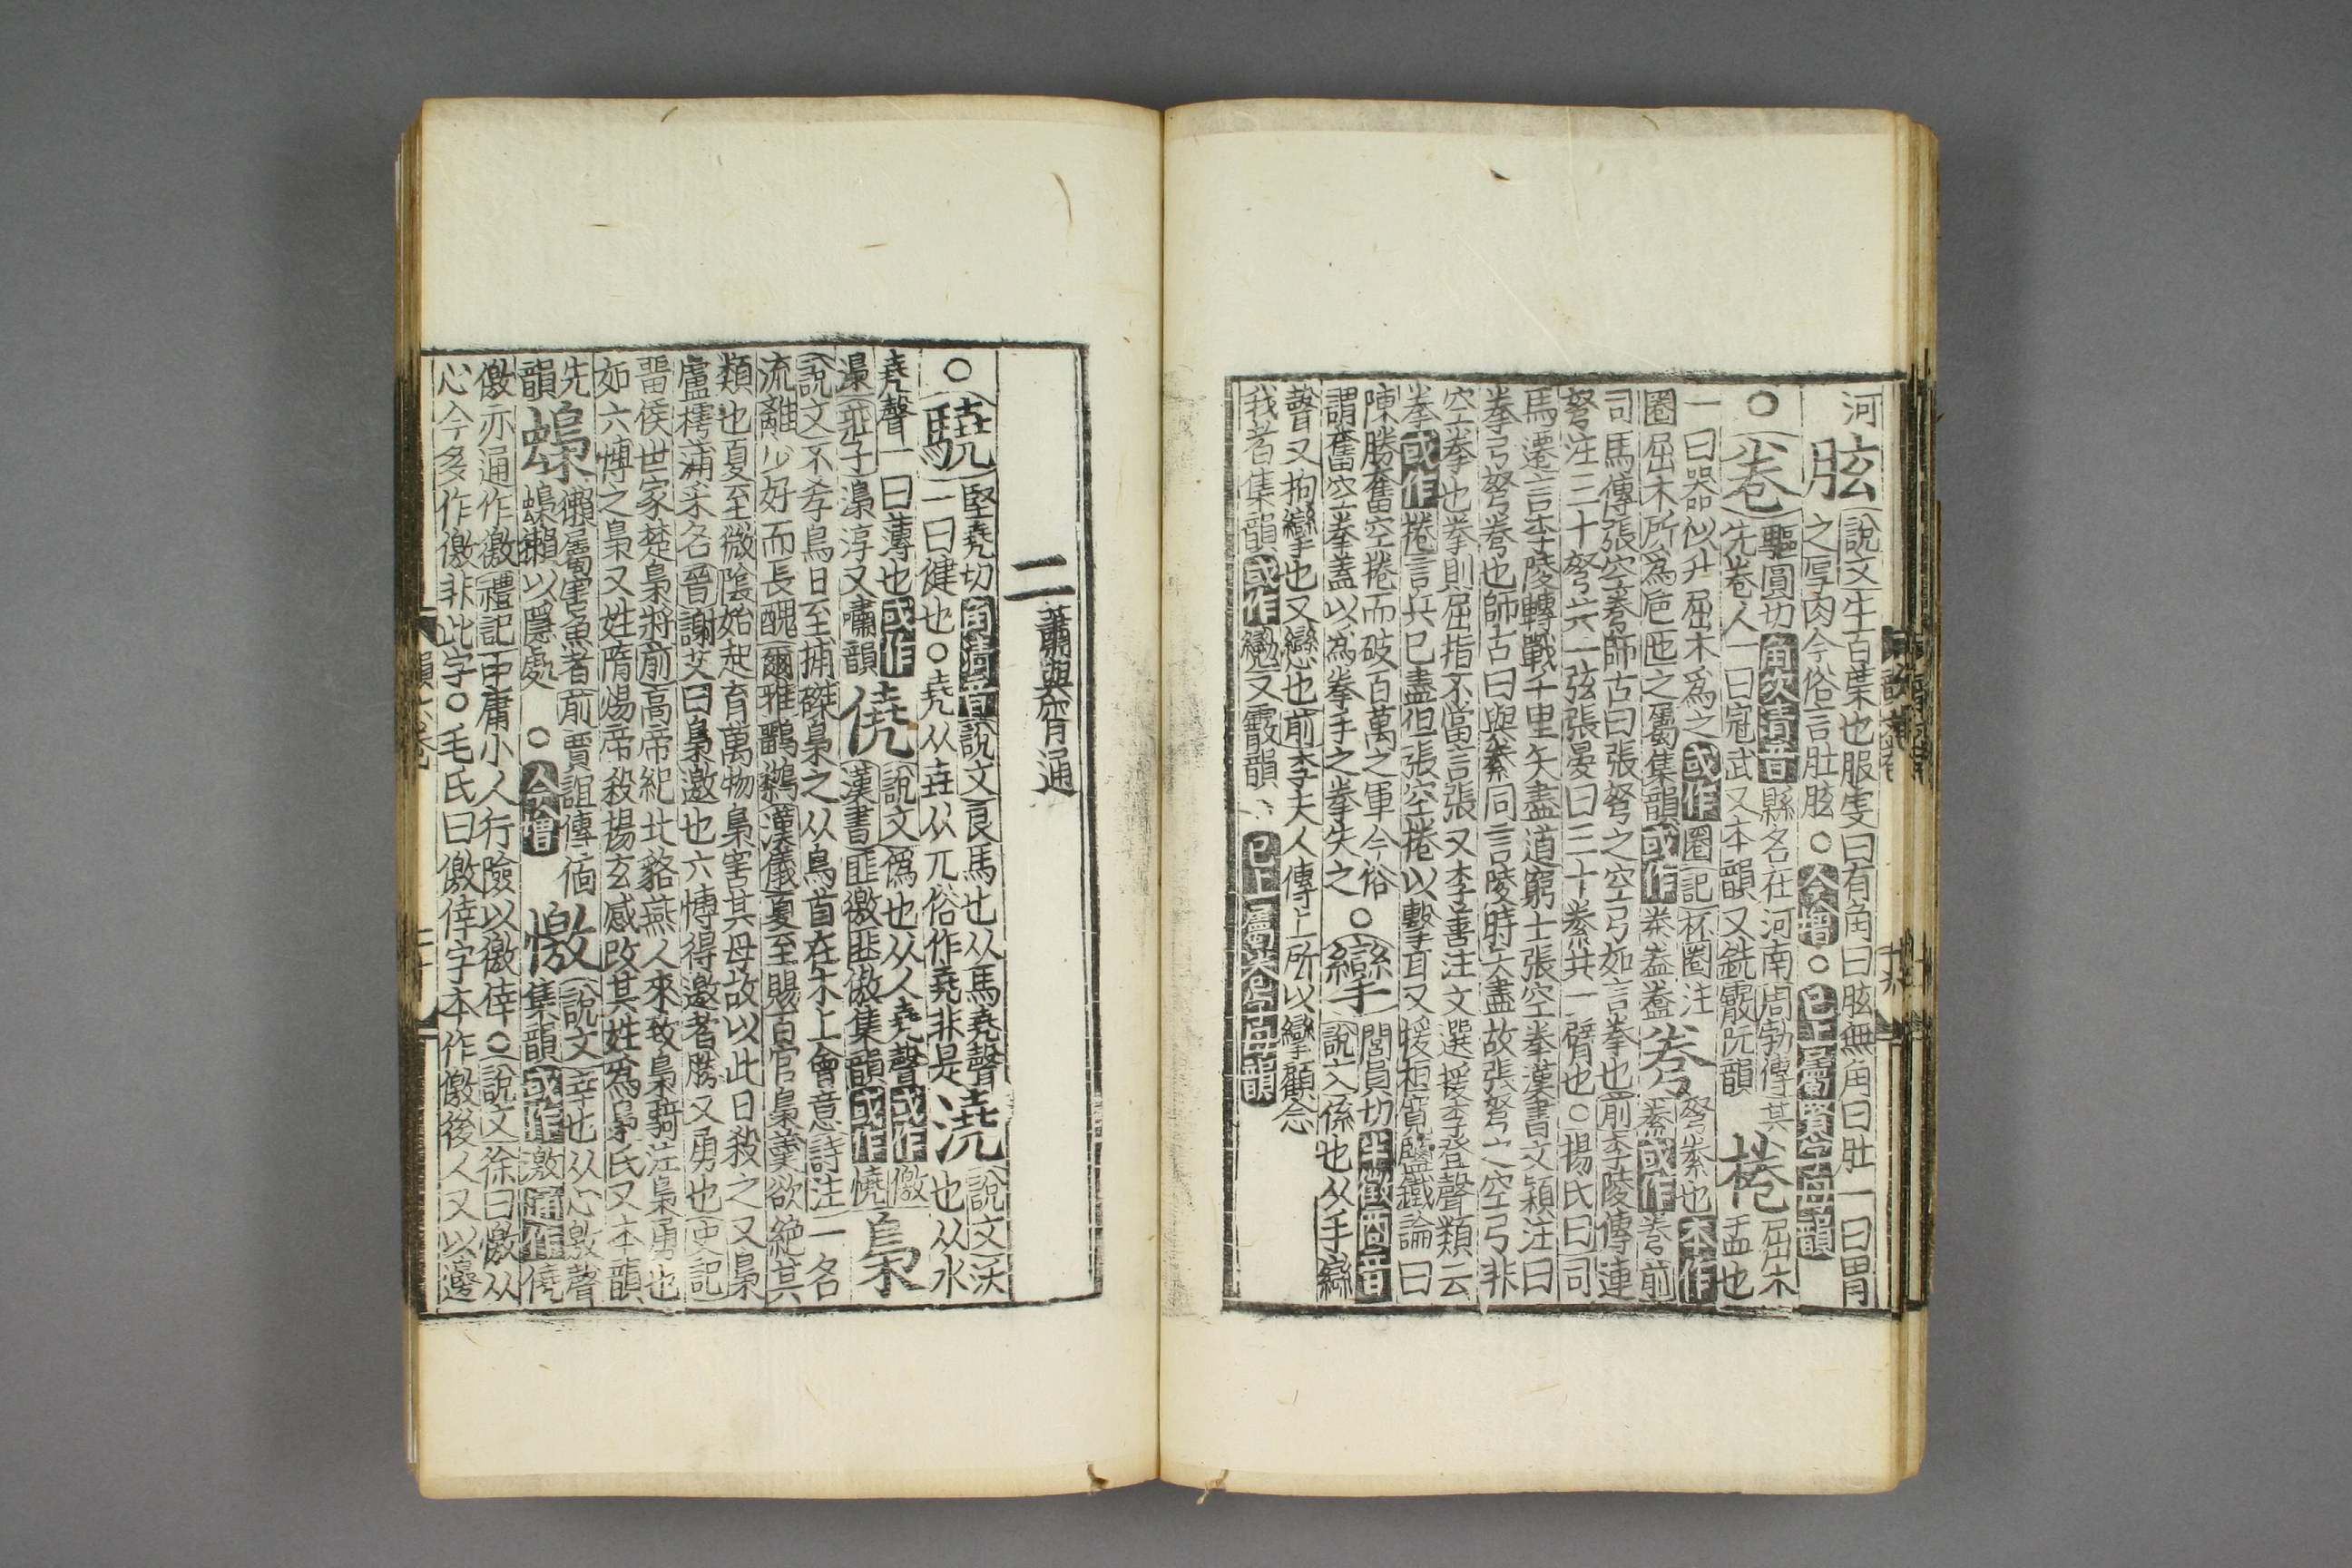 河
胘 說文牛百葉也服䖍曰有角曰胘無角曰肚一曰胃
之厚肉今俗言肚胘○今增○已上屬賢字母韻
○卷 驅圓切角次清音縣名在河南周勃傳其
先卷人一曰冠武又本韻又銑霰阮韻
棬 屈木盂也
一曰器似升屈木爲之或作圈記杯圈注
圈屈木所爲卮匜之屬集韻或作
弮 弩絭也本作絭前
司馬傳張空弮師古曰張弩之空弓如言拳也前李陵傳連
弩注三十弩共一弦張晏曰三十絭共一臂也○楊氏曰司
馬遷言李陵轉戰千里矢盡道窮士張空拳漢書文穎注曰
拳弓弩弮也師古曰與絭同言陵時矢盡故張弩之空弓非
空拳也拳則屈指不當言張又李善注文選援李登聲類云
拳或作捲言兵已盡但張空捲以擊耳又援桓寬鹽鐵論曰
陳勝奮空捲而破百萬之軍今俗
謂奮空拳蓋以爲拳手之拳失之○
攣 閭員切半徵商音
說文係也从手䜌
聲又拘攣也又戀也前李夫人傳上所以攣顧念
我者集韻或作又霰韻 已上屬卷字母韻
二 蕭與宵通
○驍 堅堯切角清音說文良馬也从馬堯聲
一曰健也○堯从垚从兀俗作尭非是
澆 說文沃也从水
堯聲一曰薄也或作
澆莊子澆淳又嘯韻
僥 說文僞也从人堯聲或作儌
漢書匪儌匪傲集韻或作憢
梟
說文不孝鳥日至捕磔梟之从鳥首在木上會意詩注一名
流離少好而長醜爾雅鸋鴂漢儀夏至賜百官梟羹欲絶其
類也夏至微陰始起育萬物梟害其母故以此日殺之又梟
盧樗蒲采名晉謝艾曰梟邀也六博得邀者勝又勇也史記
畱侯世家楚梟將前高帝紀北貉燕人來致梟騎注梟勇也
如六博之梟又姓隋煬帝殺楊玄感改其姓爲梟氏又本韻
先韻
蟂 獺屬害魚者前賈誼傳偭
蟂獺以隱處○今增
憿 說文幸也从心敫聲
集韻或作激通作僥
儌亦通作徼禮記中庸小人行險以徼倖○說文徐曰憿从
心今多作儌非此字○毛氏曰儌倖字本作儌後人又以邊